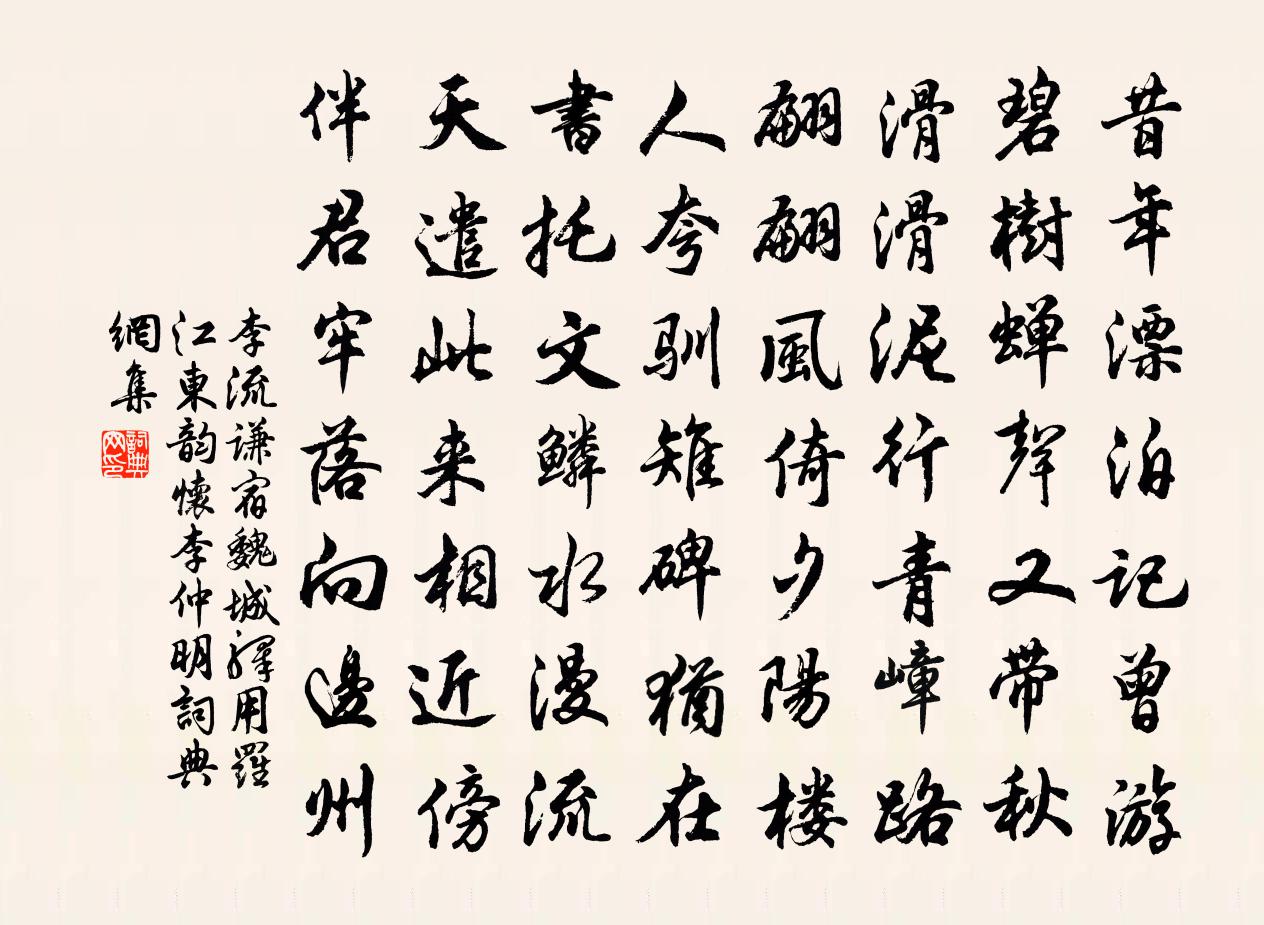 昔年漂泊记曾游
碧樹蝉聲又带秋
滑滑泥行青嶂路
翩翩風倚夕陽楼
人夸驯雉碑猶在
書托文鱗水漫流
天遣此来相近傍
伴君牢落向邊州
李流谦宿魏城驛用羅
江東韵懷李仲明詞典
網集
詞典网印